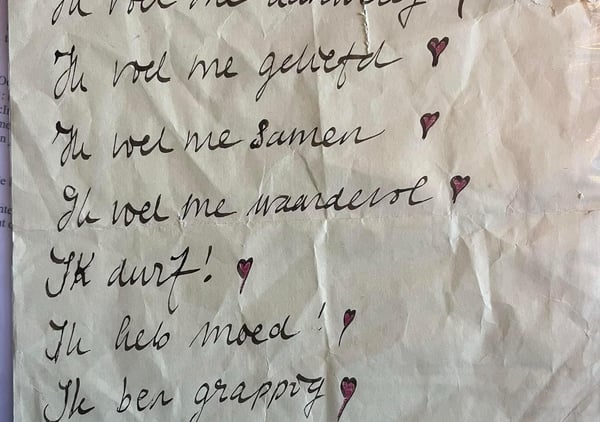 Ik voel me aanwezig
Ik voel me geliefd
Ik voel me samen
Ik voel me waardevol
Ik durf!
Ik heb moed!
Ik ben grappig